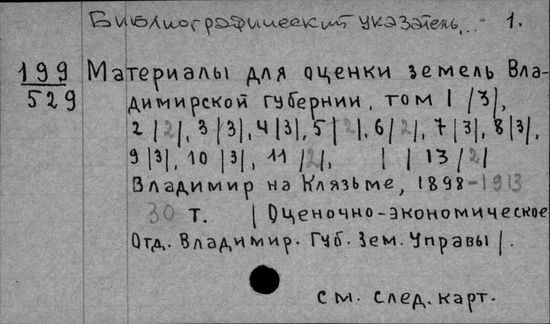 Библиографический указатель... 1.
199
529
Материалы для оценки земель Вла-
димирской губернии, том 1 /3/,
2 /2/, 3 /3/, 4 /3/, 5 /2/, 6 /2/, 7 /3/, 8 /3/,
9 /3/, 10 /3/, 11 /2/, / / 13 /2/
Владимир на Клязьме, 1898-1913
30 т. / Оценочно-экономическое
Отд. Владимир. Губ. Зем. Управы /.
см. след. карт.